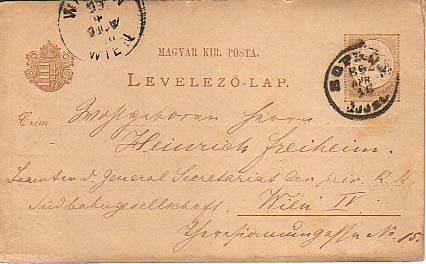 WIEN
MAGYAR KIR. POSTA.
LEVELEZŐ-LAP.
SOPRON
86
APR
2
Czim
Wohlgeboren Herrn
Heinrich Freiheim
Beamten d. General Secretariat der priv. k. k.
Südbahngesellschaft.
Wien IV.
Theresianumgasse No 15.